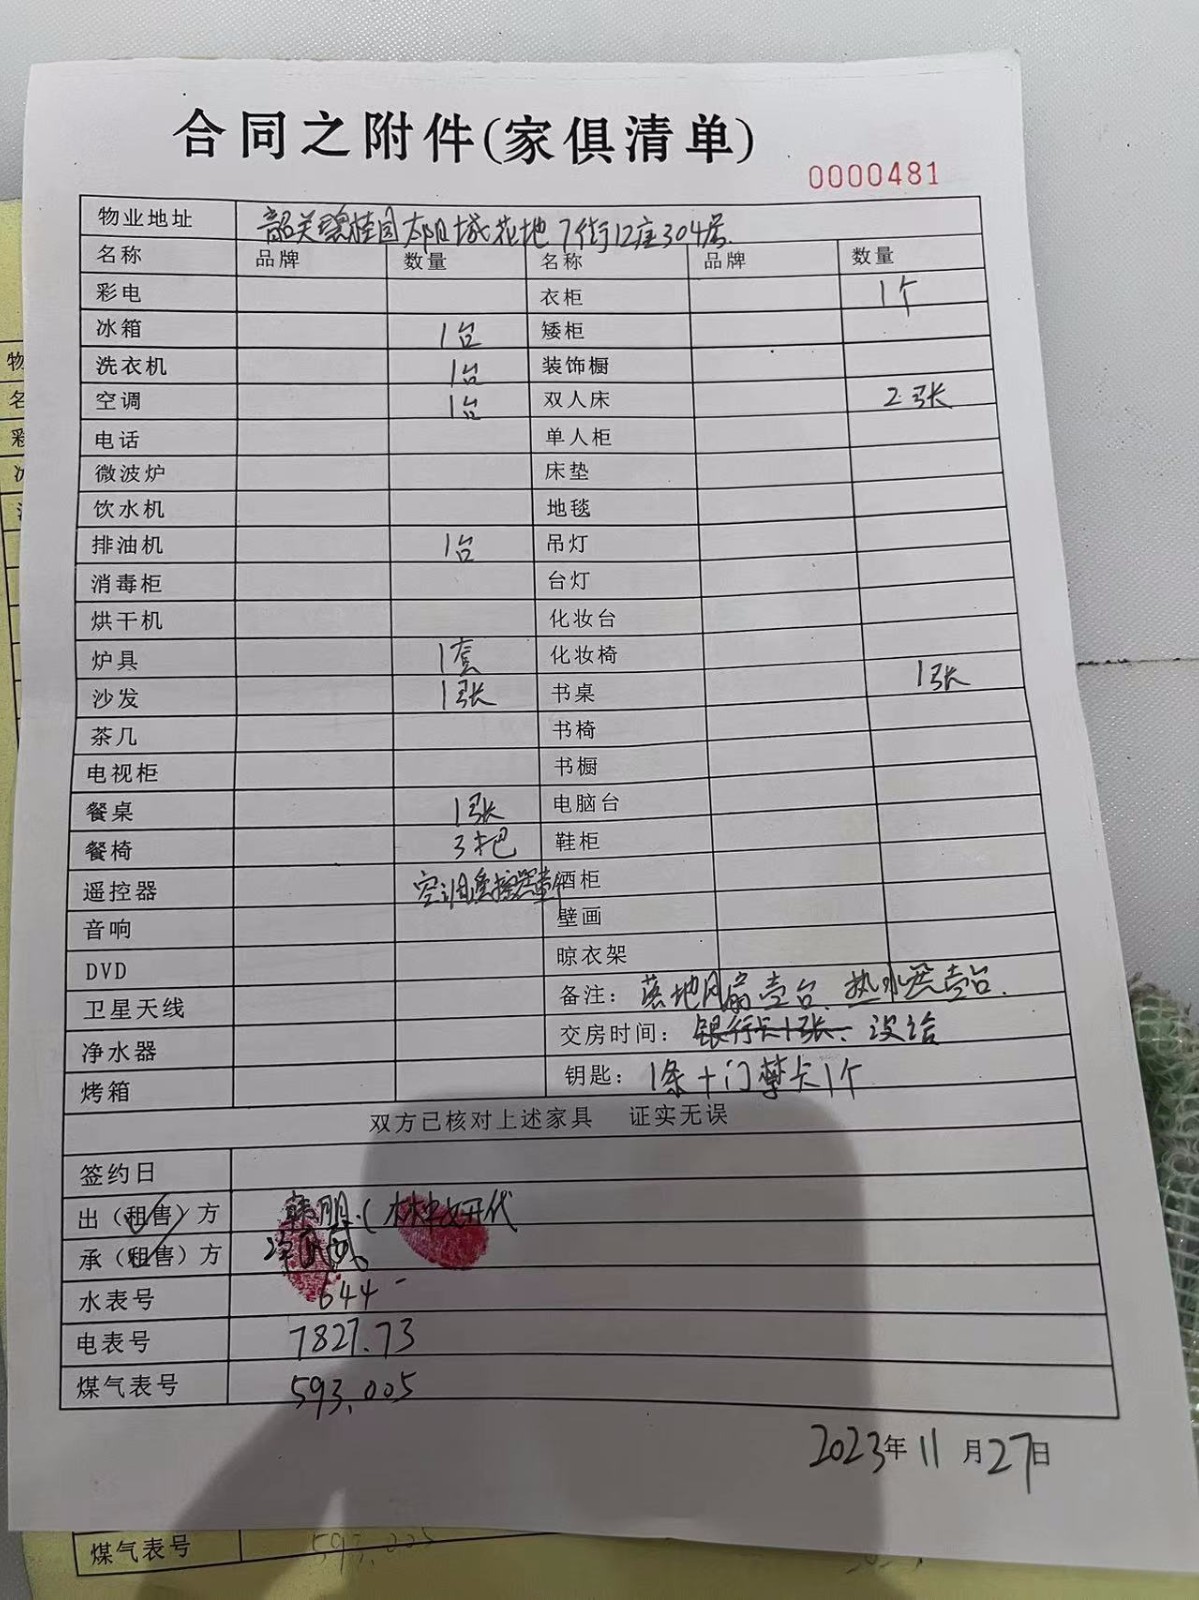 合同之附件(家俱清单)
0000481
物业地址 韶关碧桂园太阳城花地7街12座304房.
名称 品牌 数量 名称 品牌 数量
彩电 衣柜 1个
冰箱 1台 矮柜
洗衣机 1台 装饰橱
空调 1台 双人床 2张
电话 单人柜
微波炉 床垫
饮水机 地毯
排油机 1台 吊灯
消毒柜 台灯
烘干机 化妆台
炉具 1套 化妆椅
沙发 1张 书桌 1张
茶几 书椅
电视柜 书橱
餐桌 1张 电脑台
餐椅 3把 鞋柜
遥控器 空调遥控器壹个 酒柜
音响 壁画
DVD 晾衣架
卫星天线 备注: 落地风扇壹台、热水器壹台.
净水器 交房时间: 银行卡1张. 没给
烤箱 钥匙: 1条+门禁卡1个
双方已核对上述家具 证实无误
签约日
出(租售)方 韩朋.(林妍代
承(租售)方
水表号 644
电表号 7827.73
煤气表号 593.005
2023年11月27日
煤气表号 593.005
物
名
彩